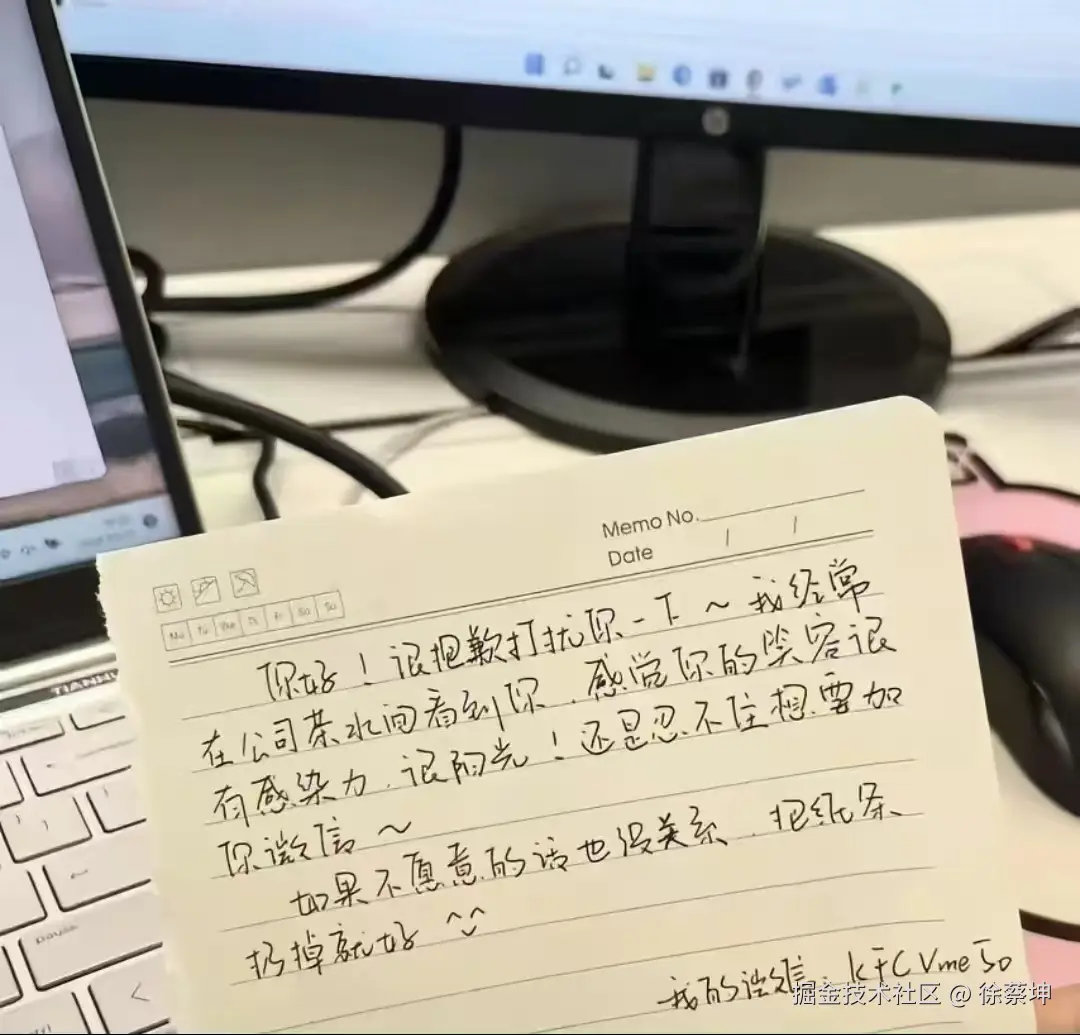 Memo No.
Date / /
Mo Tu We Th Fr Sa Su
你好！很抱歉打扰你一下～我经常
在公司茶水间看到你，感觉你的笑容很
有感染力，很阳光！还是忍不住想要加
你微信～
如果不愿意的话也没关系，把纸条
扔掉就好 ^_^
我的微信：KFCVme50
TIANNY
pause
hp
掘金技术社区 @ 徐蔡坤